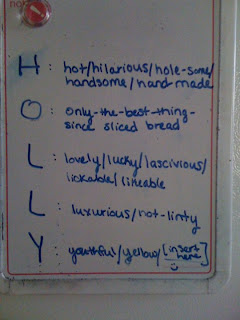 H : hot/hilarious/hole-some/
handsome/hand made
O : only-the-best-thing-
since sliced bread
L : lovely/lucky/lascivious/
lickable/likeable
L : luxurious/not-linty
Y : youthful/yellow/[insert
here]